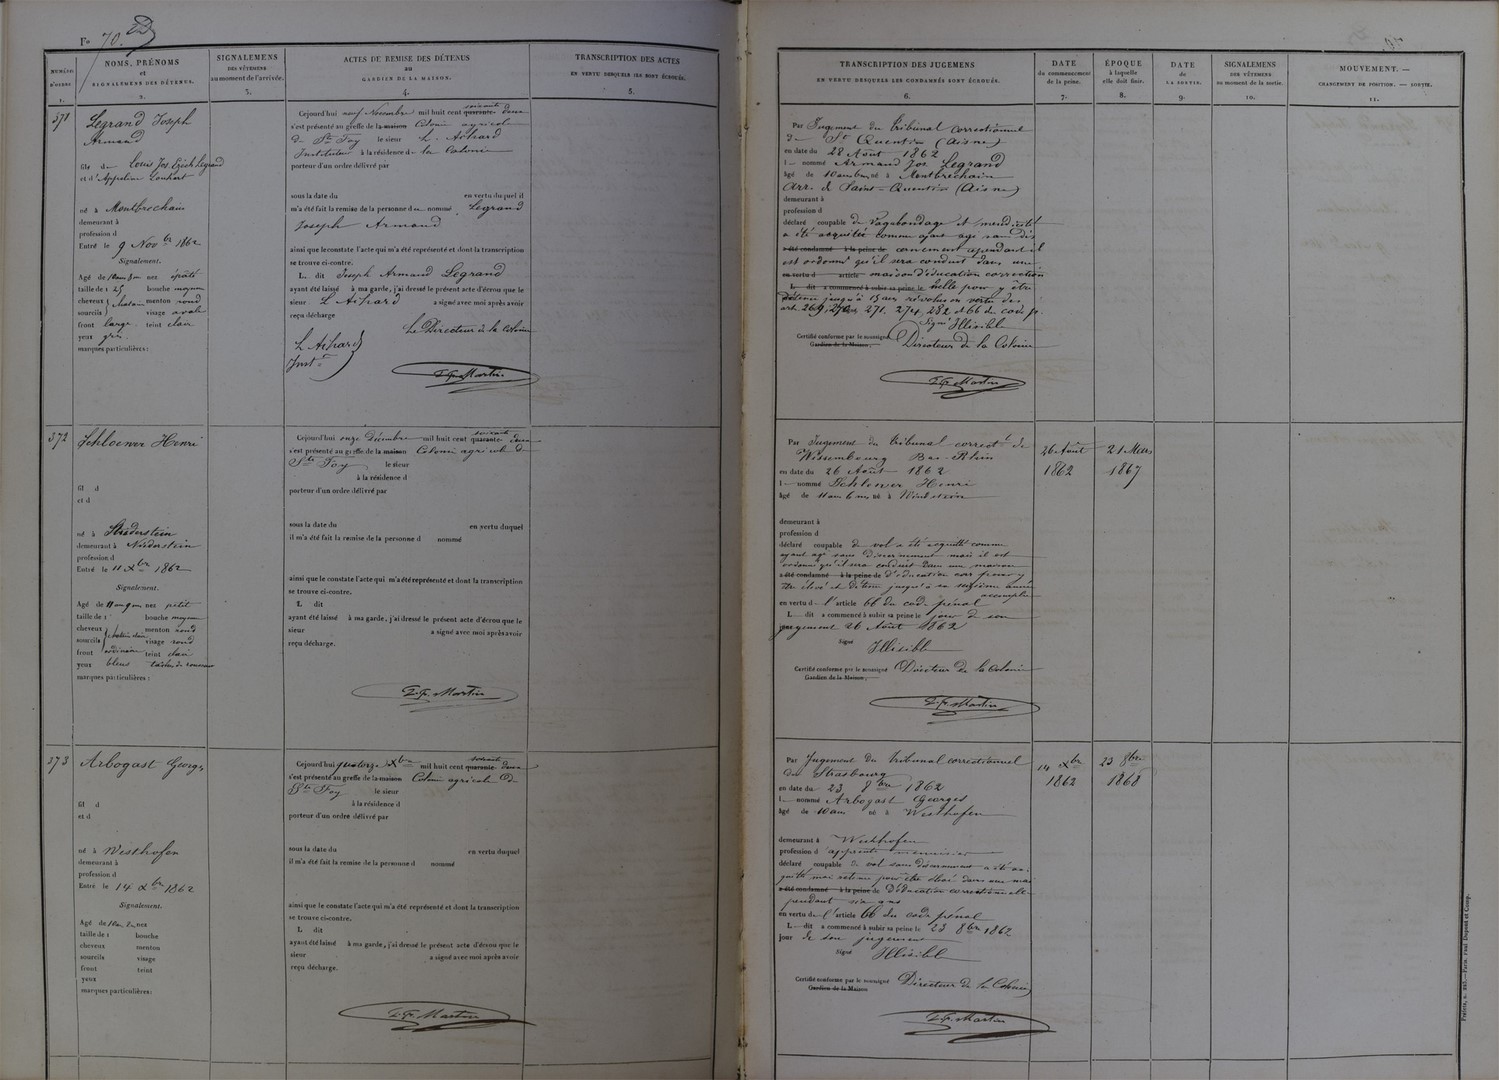 Fo 70.
NUMÉRO D'ORDRE
1.
NOMS, PRÉNOMS
et
SIGNALEMENS DES DÉTENUS.
2.
SIGNALEMENS
DES VÊTEMENS
au moment de l'arrivée.
3.
ACTES DE REMISE DES DÉTENUS
au
GARDIEN DE LA MAISON.
4.
TRANSCRIPTION DES ACTES
EN VERTU DESQUELS ILS SONT ÉCROUÉS.
5.
371
Legrand Joseph
Armand
fils de Louis Jos Legrand
et d'
né à Montbrechain
demeurant à
profession d
Entré le 9 Nov bre 1862
Signalement.
Agé de nez épaté
taille de 1 25 bouche moyen
cheveux chatain menton rond
sourcils visage ovale
front large teint clair
yeux gris
marques particulières :
Cejourd'hui neuf Novembre mil huit cent quarante- soixante deux
s'est présenté au greffe de la maison Colonie agricole
de Ste Foy le sieur L. Aihard
Instituteur à la résidence de la Colonie
porteur d'un ordre délivré par
sous la date du en vertu duquel il
m'a été fait la remise de la personne du nommé Legrand
Joseph Armand
ainsi que le constate l'acte qui m'a été représenté et dont la transcription
se trouve ci-contre.
L. dit Joseph Armand Legrand
ayant été laissé à ma garde, j'ai dressé le présent acte d'écrou que le
sieur L Aihard a signé avec moi après avoir
reçu décharge
Le Directeur de la Colonie
L Aihard
Inst.r
372
Schloewer Henri
fil d
et d
né à
demeurant à Niederstein
profession d
Entré le 11 Xbre 1862
Signalement.
Agé de nez petit
taille de 1 bouche moyen
cheveux menton rond
sourcils chatain clair visage rond
front ordinaire teint clair
yeux bleus taches de rousseur
marques particulières :
Cejourd'hui onze Décembre mil huit cent quarante- soixante deux
s'est présenté au greffe de la maison Colonie agricole de
Ste Foy le sieur
à la résidence d
porteur d'un ordre délivré par
sous la date du en vertu duquel
il m'a été fait la remise de la personne d nommé
ainsi que le constate l'acte qui m'a été représenté et dont la transcription
se trouve ci-contre.
L dit
ayant été laissé à ma garde, j'ai dressé le présent acte d'écrou que le
sieur a signé avec moi après avoir
reçu décharge.
Martin
373
Arbogast Georges
fil d
et d
né à Westhofen
demeurant à
profession d
Entré le 14 Xbre 1862
Signalement.
Agé de 10 an 2 m nez
taille de 1 bouche
cheveux menton
sourcils visage
front teint
yeux
marques particulières :
Cejourd'hui quatorze Xbre mil huit cent quarante- soixante deux
s'est présenté au greffe de la maison Colonie agricole de
Ste Foy le sieur
à la résidence d
porteur d'un ordre délivré par
sous la date du en vertu duquel
il m'a été fait la remise de la personne d nommé
ainsi que le constate l'acte qui m'a été représenté et dont la transcription
se trouve ci-contre.
L dit
ayant été laissé à ma garde, j'ai dressé le présent acte d'écrou que le
sieur a signé avec moi après avoir
reçu décharge.
Martin
TRANSCRIPTION DES JUGEMENS
EN VERTU DESQUELS LES CONDAMNÉS SONT ÉCROUÉS.
6.
DATE
du commencement
de la peine.
7.
ÉPOQUE
à laquelle
elle doit finir.
8.
DATE
de
LA SORTIE.
9.
SIGNALEMENS
DES VÊTEMENS
au moment de la sortie.
10.
MOUVEMENT. —
CHANGEMENT DE POSITION. — SORTIE.
11.
Par Jugement du tribunal correctionnel
de St Quentin (Aisne)
en date du 28 Août 1862
l nommé Armand Jos Legrand
âgé de 10 ans 6 m né à Montbrechain
Arr. de Saint-Quentin (Aisne)
demeurant à
profession d
déclaré coupable de Vagabondage et mendicité
a été acquitté comme ayant agi sans dis
a été condamné à la peine de cernement cependant il
est ordonné qu'il sera conduit dans une
en vertu d article maison d'éducation correction
L. dit a commencé à subir sa peine le nelle pour y être
détenu jusqu'à 15 ans révolus en vertu des
art. 269, 270, 271, 274, 282 et 66 du code p.
Signé Illisible
Certifié conforme par le soussigné Directeur de la Colonie
Gardien de la Maison.
Martin
Par Jugement du Tribunal correct.l de
Wissembourg Bas-Rhin
en date du 26 Août 1862
l nommé Schloewer Henri
âgé de 11 ans 6 m né à
demeurant à
profession d
déclaré coupable de vol a été acquitté comme
ayant agi sans discernement mais il est
ordonné qu'il sera conduit dans une maison
a été condamné à la peine de d'éducation corr pour y
être élevé et détenu jusqu'à sa seizième année
accomplie
en vertu de l'article 66 du code pénal
L. dit a commencé à subir sa peine le jour de son
jugement 26 Août 1862
Signé Illisible
Certifié conforme par le soussigné Directeur de la Colonie
Gardien de la Maison.
Martin
26 Août
1862
21 Mars
1867
Par Jugement du Tribunal correctionnel
de Strasbourg
en date du 23 8bre 1862
l nommé Arbogast Georges
âgé de 10 ans né à Westhofen
demeurant à Westhofen
profession d'apprenti menuisier
déclaré coupable de vol sans discernement a été ac-
quitté mai retenu pour être élevé dans une mai
a été condamné à la peine de d'éducation correctionnelle
pendant six ans
en vertu de l'article 66 du code pénal
L. dit a commencé à subir sa peine le 23 8bre 1862
jour de son jugement
Signé Illisible
Certifié conforme par le soussigné Directeur de la Colonie
Gardien de la Maison
Martin
14 Xbre
1862
23 8bre
1868